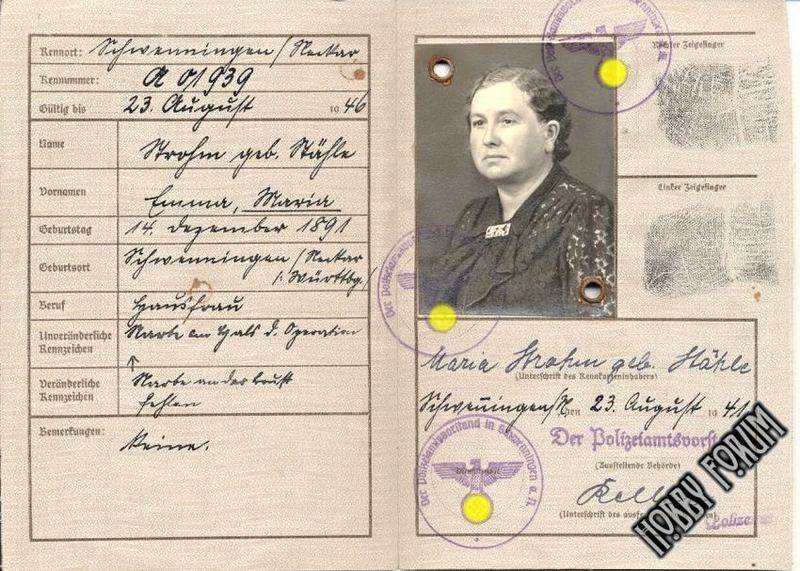 Kennort: Schwenningen / Neckar
Kennummer: A 01939
Gültig bis 23. August 1946
Name Strohm geb. Stähle
Vornamen Emma, Maria
Geburtstag 14. Dezember 1891
Geburtsort Schwenningen / Neckar
/: Württbg. /
Beruf Hausfrau
Unveränderliche Kennzeichen Narbe am Hals d. Operation
Narbe an der Brust
Veränderliche Kennzeichen fehlen
Bemerkungen: Keine.
Rechter Zeigefinger
Linker Zeigefinger
Maria Strohm geb. Stähle
(Unterschrift des Kennkarteninhabers)
Schwenningen/N den 23. August 1941
Der Polizeiamtsvorst
(Ausstellende Behörde)
Der Polizeiamtsvorstand in Schwenningen a. N.
Dienststempel
(Unterschrift des ausf
HOBBY FORUM